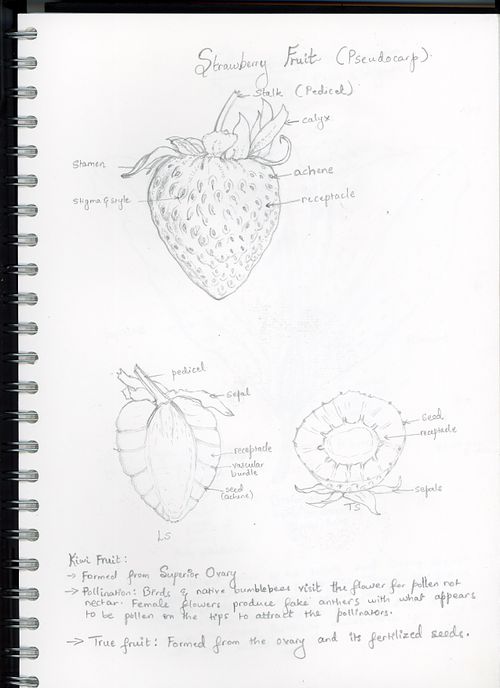 Strawberry Fruit (Pseudocarp)
Stalk (Pedicel)
calyx
Stamen
achene
Stigma & style
receptacle
pedicel
sepal
receptacle
vascular
bundle
seed
(achene)
LS
seed
receptacle
sepals
TS
Kiwi Fruit:
→ Formed from Superior Ovary
→ Pollination: Birds & native bumblebees visit the flower for pollen not
nectar. Female flowers produce fake anthers with what appears
to be pollen on the tips to attract the pollinators.
→ True fruit: Formed from the ovary and its fertilized seeds.